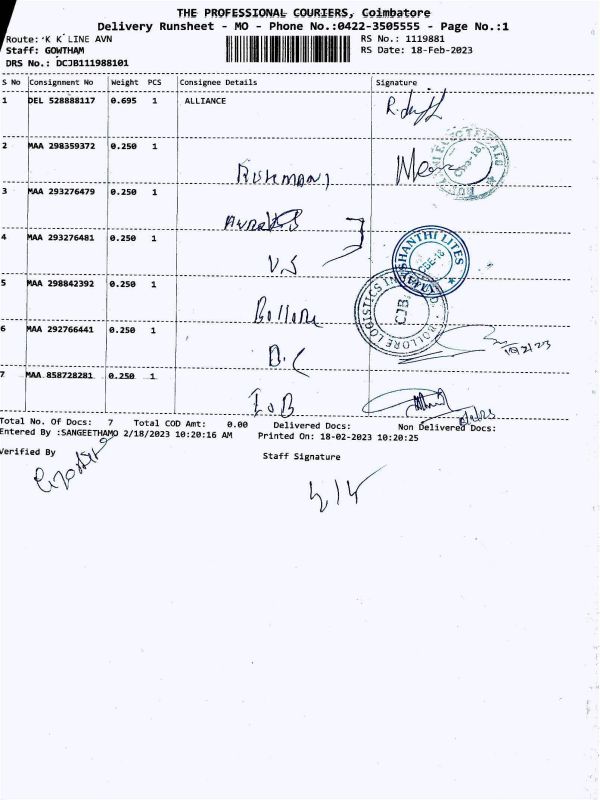 THE PROFESSIONAL COURIERS, Coimbatore
Delivery Runsheet - MO - Phone No.:0422-3505555 - Page No.:1
Route: K K LINE AVN
RS No.: 1119881
Staff: GOWTHAM
RS Date: 18-Feb-2023
DRS No.: DCJB111988101
S No Consignment No Weight PCS Consignee Details Signature
1 DEL 528888117 0.695 1 ALLIANCE
2 MAA 298359372 0.250 1
3 MAA 293276479 0.250 1
4 MAA 293276481 0.250 1
V.S
SHANTHI LITES
CBE-18
5 MAA 298842392 0.250 1
Bollore
BOLLORE LOGISTICS
CJB
6 MAA 292766441 0.250 1
D.C
7 MAA 858728281 0.250 1
I o B
Total No. Of Docs: 7 Total COD Amt: 0.00 Delivered Docs: Non Delivered Docs:
Entered By :SANGEETHAMO 2/18/2023 10:20:16 AM Printed On: 18-02-2023 10:20:25
Verified By Staff Signature